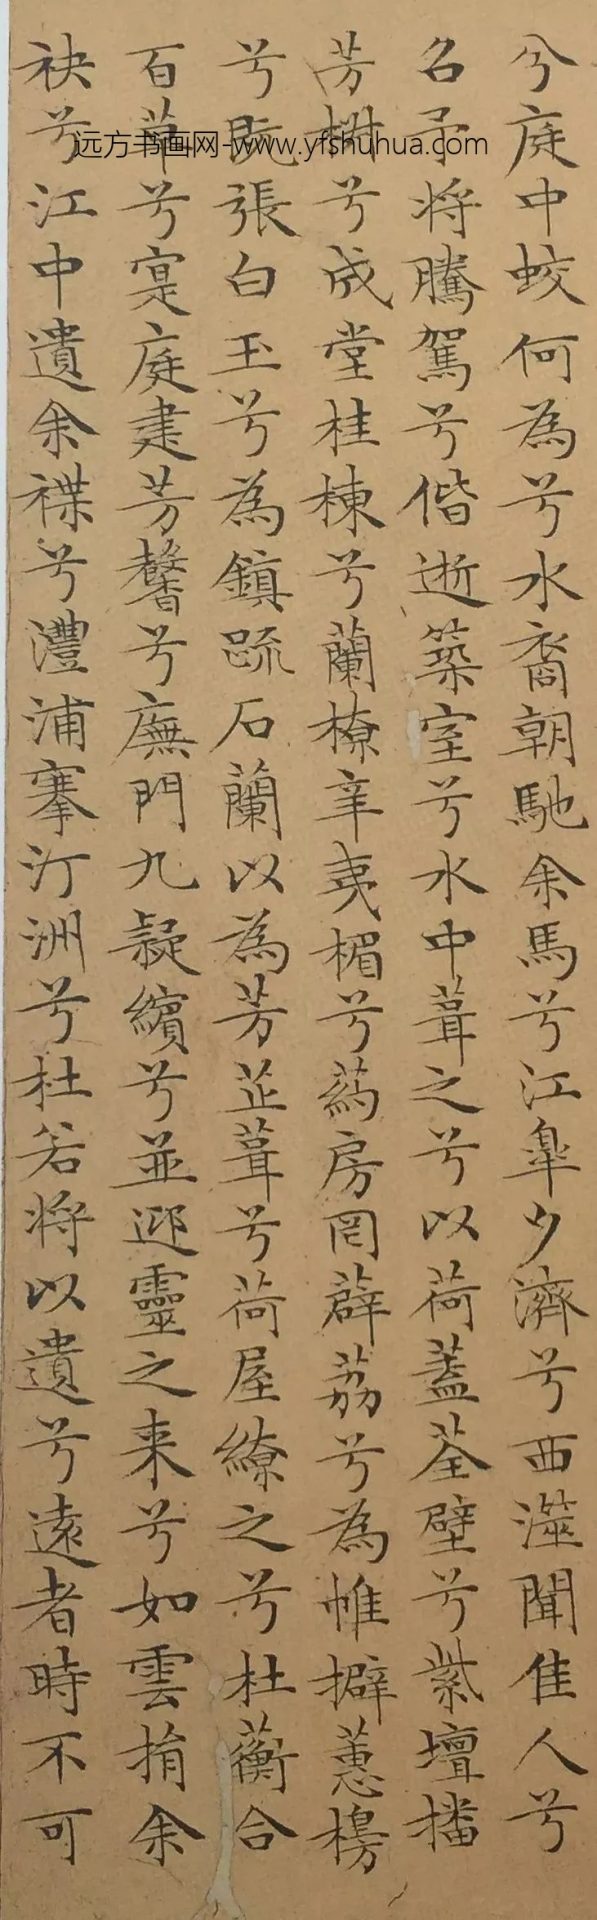 兮庭中蛟何為兮水裔朝馳余馬兮江皐夕濟兮西澨聞佳人兮
召予將騰駕兮偕逝築室兮水中葺之兮以荷蓋荃壁兮紫壇播
芳椒兮成堂桂棟兮蘭橑辛夷楣兮葯房罔薜荔兮為帷擗蕙櫋
兮既張白玉兮為鎮疏石蘭以為芳芷葺兮荷屋繚之兮杜蘅合
百草兮寔庭建芳馨兮廡門九疑繽兮並迎靈之来兮如雲捐余
袂兮江中遺余褋兮澧浦搴汀洲兮杜若將以遺兮遠者時不可
远方书画网-www.yfshuhua.com